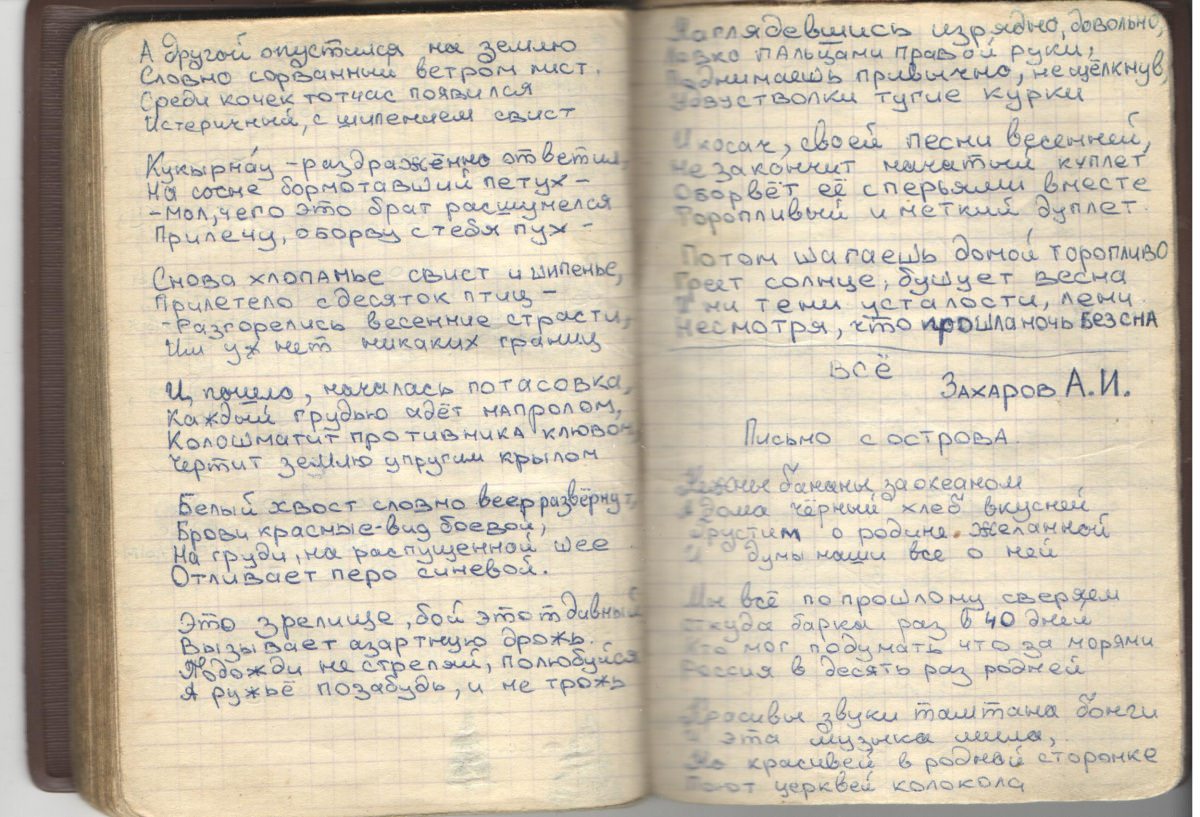 А другой опустился на землю
Словно сорванный ветром лист.
Среди кочек тотчас появился
Истеричный, с шипением свист
Кукырна́у – раздражённо ответил
На сосне бормотавший петух –
– мол, чего это брат расшумелся
Прилечу, оборву с тебя пух –
Снова хлопанье свист и шипенье,
Прилетело с десяток птиц –
– Разгорелись весенние страсти,
Им уж нет никаких границ
И, пошло, началась потасовка,
Каждый грудью идёт напролом,
Колошматит противника клювом
Чертит землю упругим крылом
Белый хвост словно веер развёрнут,
Брови красные – вид боевой,
На груди, на распущенной шее
Отливает перо синевой.
Это зрелище, бой этот дивный
Вызывает азартную дрожь.
Подожди не стреляй, полюбуйся
А ружьё позабудь, и не трожь
Наглядевшись изрядно, довольно,
Ловко пальцами правой руки,
Поднимаешь привычно, не щёлкнув,
У двустволки тугие курки
И косач, своей песни весенней,
Не закончит начатый куплет
Оборвёт её с перьями вместе
Торопливый и меткий дуплет.
Потом шагаешь домой торопливо
Греет солнце, бушует весна
И ни тени усталости, лени
Несмотря, что прошла ночь без сна
всё
Захаров А.И.
Письмо с острова.
Нежны бананы за океаном
А дома чёрный хлеб вкусней
Грустим о родине желанной
И думы наши все о ней
Мы всё по прошлому сверяем
откуда барка раз в 40 дней
Кто мог подумать что за морями
Россия в десять раз родней
Красивы звуки тамтана бонги
И эта музыка мила,
Но красивей в родной сторонке
Поют церквей колокола